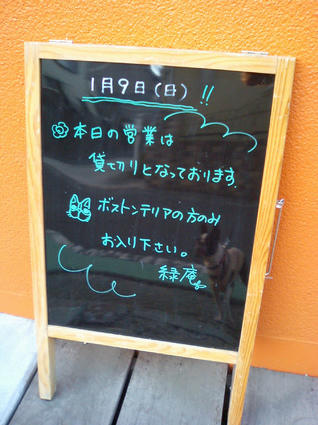 1月9日(日)!!
本日の営業は
貸切りとなっております。
ボストンテリアの方のみ
お入り下さい。
緑庵